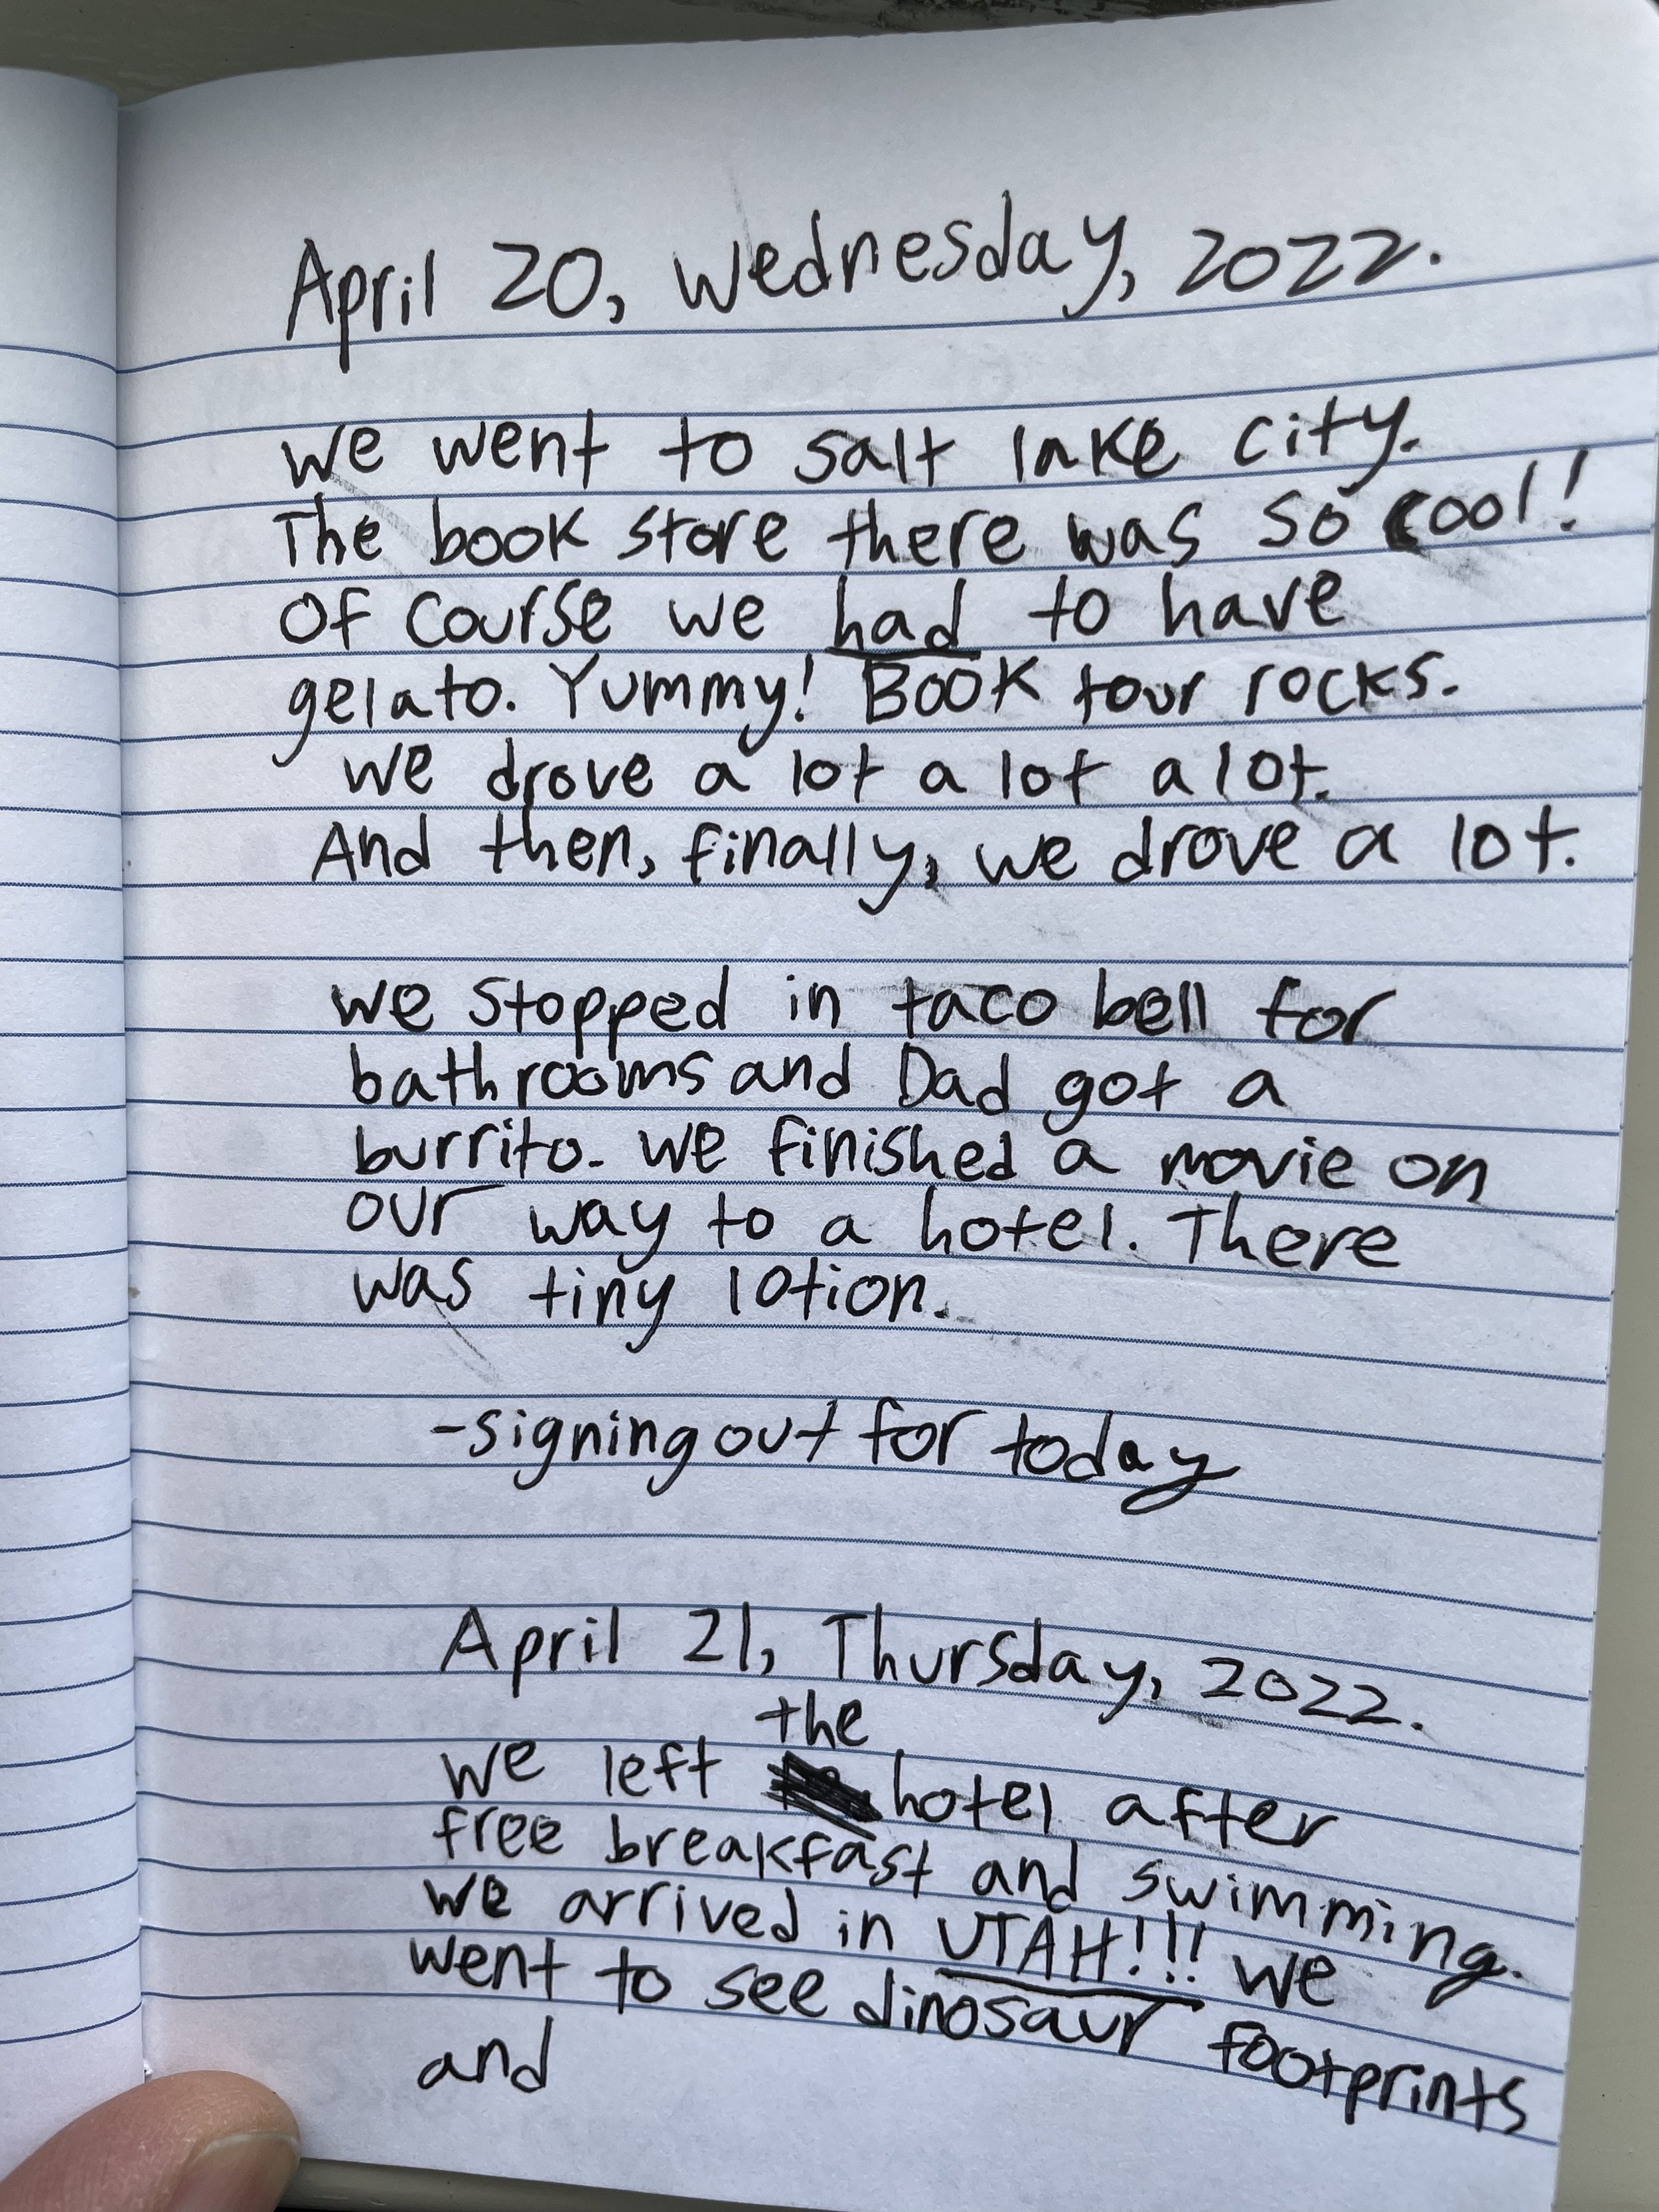 April 20, Wednesday, 2022.
we went to salt lake city.
The book store there was so cool!
Of course we had to have
gelato. Yummy! Book tour rocks.
we drove a lot a lot a lot.
And then, finally, we drove a lot.
we stopped in taco bell for
bathrooms and Dad got a
burrito. we finished a movie on
our way to a hotel. There
was tiny lotion.
-signing out for today
April 21, Thursday, 2022.
the
we left hotel after
free breakfast and swimming.
we arrived in UTAH!!! we
went to see dinosaur footprints
and